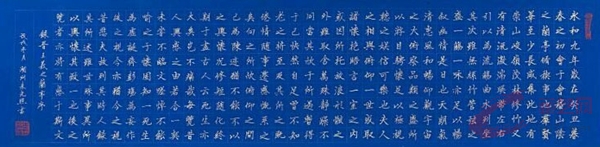 永和九年歲在癸丑暮
春之初會于會稽山陰
之蘭亭脩禊事也群賢
畢至少長咸集此地有
崇山峻領茂林脩竹又
有清流激湍映帶左右
引以為流觴曲水列坐
其次雖無絲竹管弦之
盛一觴一詠亦足以暢
敘幽情是日也天朗氣
清惠風和暢仰觀宇宙
之大俯察品類之盛所
以遊目騁懷足以極視
聽之娛信可樂也夫人
之相與俯仰一世或取
諸懷抱悟言一室之內
或因寄所託放浪形骸之
外雖趣舍萬殊靜躁不
同當其欣於所遇暫得
於己快然自足不知
老之將至及其所之既
倦情隨事遷感慨係之
矣向之所欣俛仰之間
已為陳跡猶不能不以
之興懷況脩短隨化終
期於盡古人云死生亦
大矣豈不痛哉每覽昔
人興感之由若合一契
未嘗不臨文嗟悼不能
喻之于懷固知一死生
為虛誕齊彭殤為妄作
後之視今亦猶今之視
昔悲夫故列敘時人錄
其所述雖世殊事異所
以興懷其致一也後之
覽者亦將有感於斯文
錄晉王羲之蘭亭序